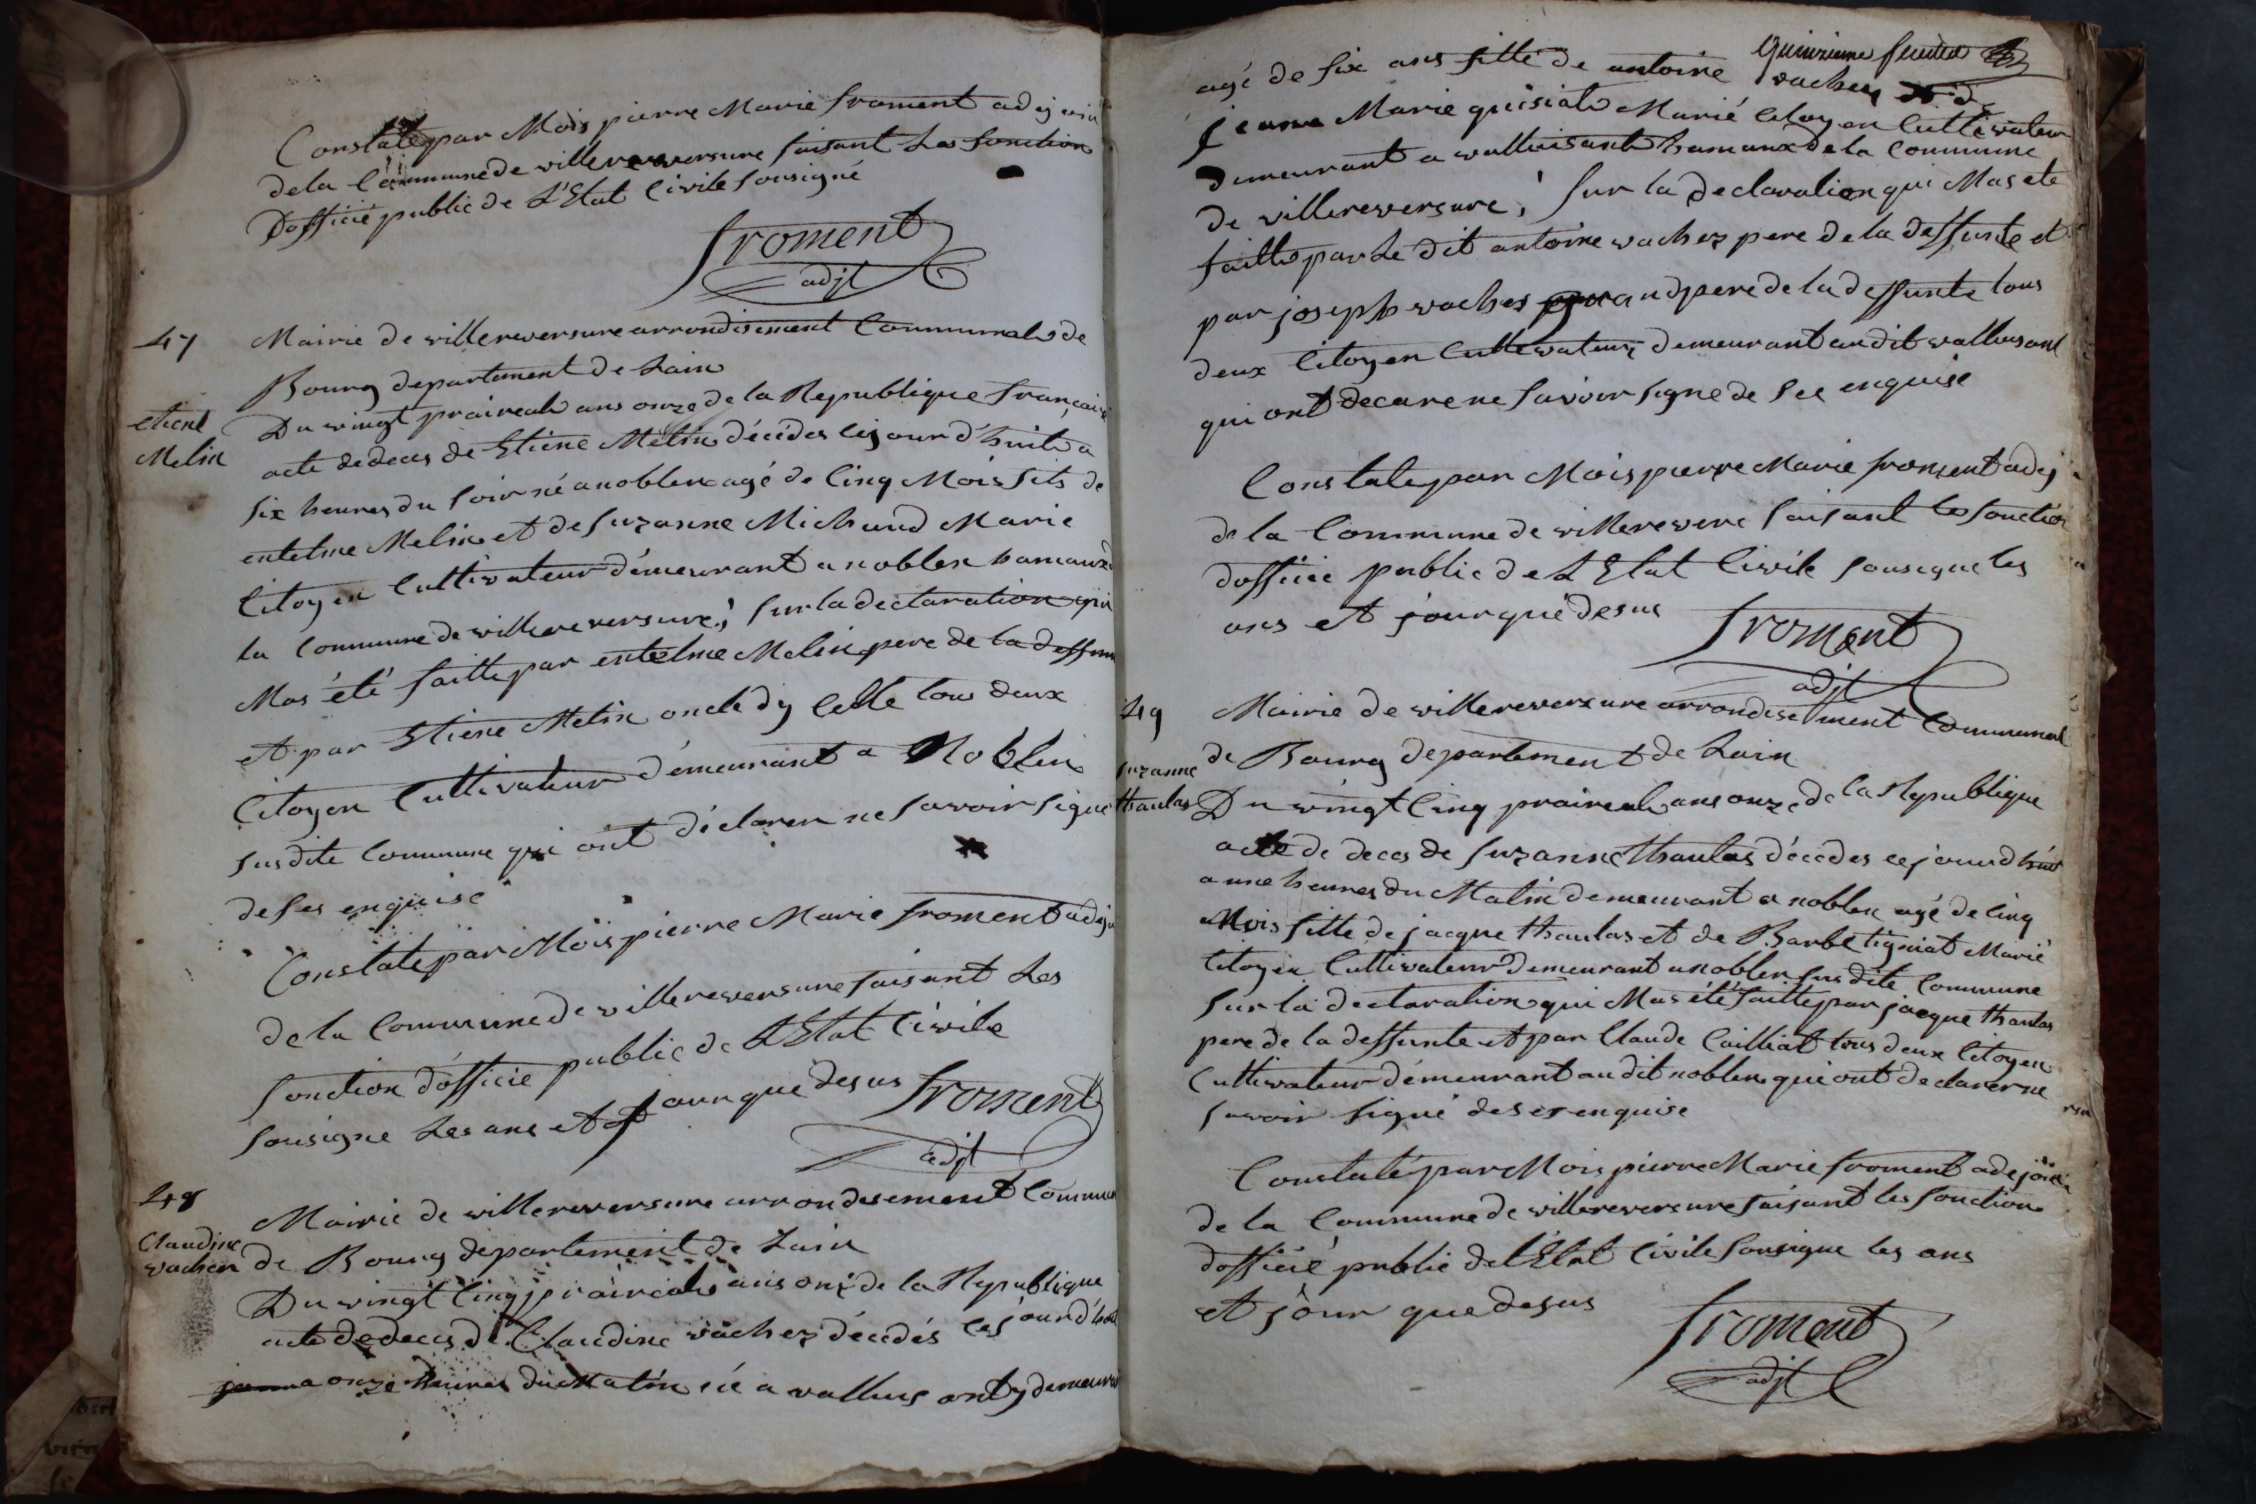 Constate par Mois pierre Marie froment adjoin
de la Commune de villereversure faisant Les fonction
Dofficié public de L'Etat Civile sousigné
froment
adjt
47
Mairie de villereversure arrondisement Communale de
Bourg departement de Lain
etiene
Melin
Du vingt praireale ans onze de la Republique française
acte dedeces de Etiene Melin décédes cejour d'huite a
six heures du soir né a noblen agé de Cinq Mois fils de
entelme Melin et de suzanne Michaud Marié
Citoyen Cultivateur démeurant a noblen hamaux
la Commune de villereversure, sur la declaration qui
Mas été faitte par entelme Melin pere de la deffun
et par Etiene Melin oncle dy Celle tous deux
Citoyen Cultivateur démeurant a Noblen
susdite Commune qui ont déclarer ne savoir signe
deses enquise
Constate par Mois pierre Marie froment adjoi
de la Commune de villereversure faisant Les
fonction d'officie public de L'Etat Civile
sousigne Les ans et jour que desus
froment
adjt
48
Mairie de villereversure arrondisement Commun
Claudine
vacher
de Bourg departement de Lain
Du vingt Cinq praireale ans onze de la Republique
acte dedeces de Claudine vachez décédés ces jourd'hui
a onze heures du Matin née a valluisant y demeurant
Quinzieme feuillet
agé de six ans fille de antoine vachez et de
jeanne Marie quisiat Marié Citoyen Cultivateur
demeurant a valluisant hamaux de la Commune
de villereversure, sur la declaration qui Mas ete
faitte par Le dit antoine vachez pere de la deffunte et
par joseph vachez grandpere de la deffunte tous
deux Citoyen Cultivateur demeurant audit valluisant
qui ont decare ne savoir signe de see enquise
Constate par Mois pierre Marie froment adej
de la Commune de villerevere faisant les fonction
dofficie public de L'Etat Civile sousigne les
ans et jour que desus
froment
adjt
49
Mairie de villereversure arrondisement Communal
de Bourg departement de Lain
suzanne
thaulas
Du vingt Cinq praireal ans onze de la Republique
acte de deces de suzanne thaulas décédes ce jourd'hui
a une heures du Matin demeurant a noblen agé de Cinq
Mois fille de jacque thaulas et de Barbe tigniat Marié
Citoyen Cultivateur demeurant a noblen susdite Commune
sur la declaration qui Mas été faitte par jacque thaulas
pere de la deffunte et par Claude Cailliat tous deux Citoyen
Cultivateur démeurant audit noblen qui ont declarer ne
savoir signé deses enquise
Constaté par Mois pierre Marie froment adejoin
de la Commune de villereversure faisant les fonction
dofficié public de l'Etat Civile sousigne les ans
et jour que desus
froment
adjt